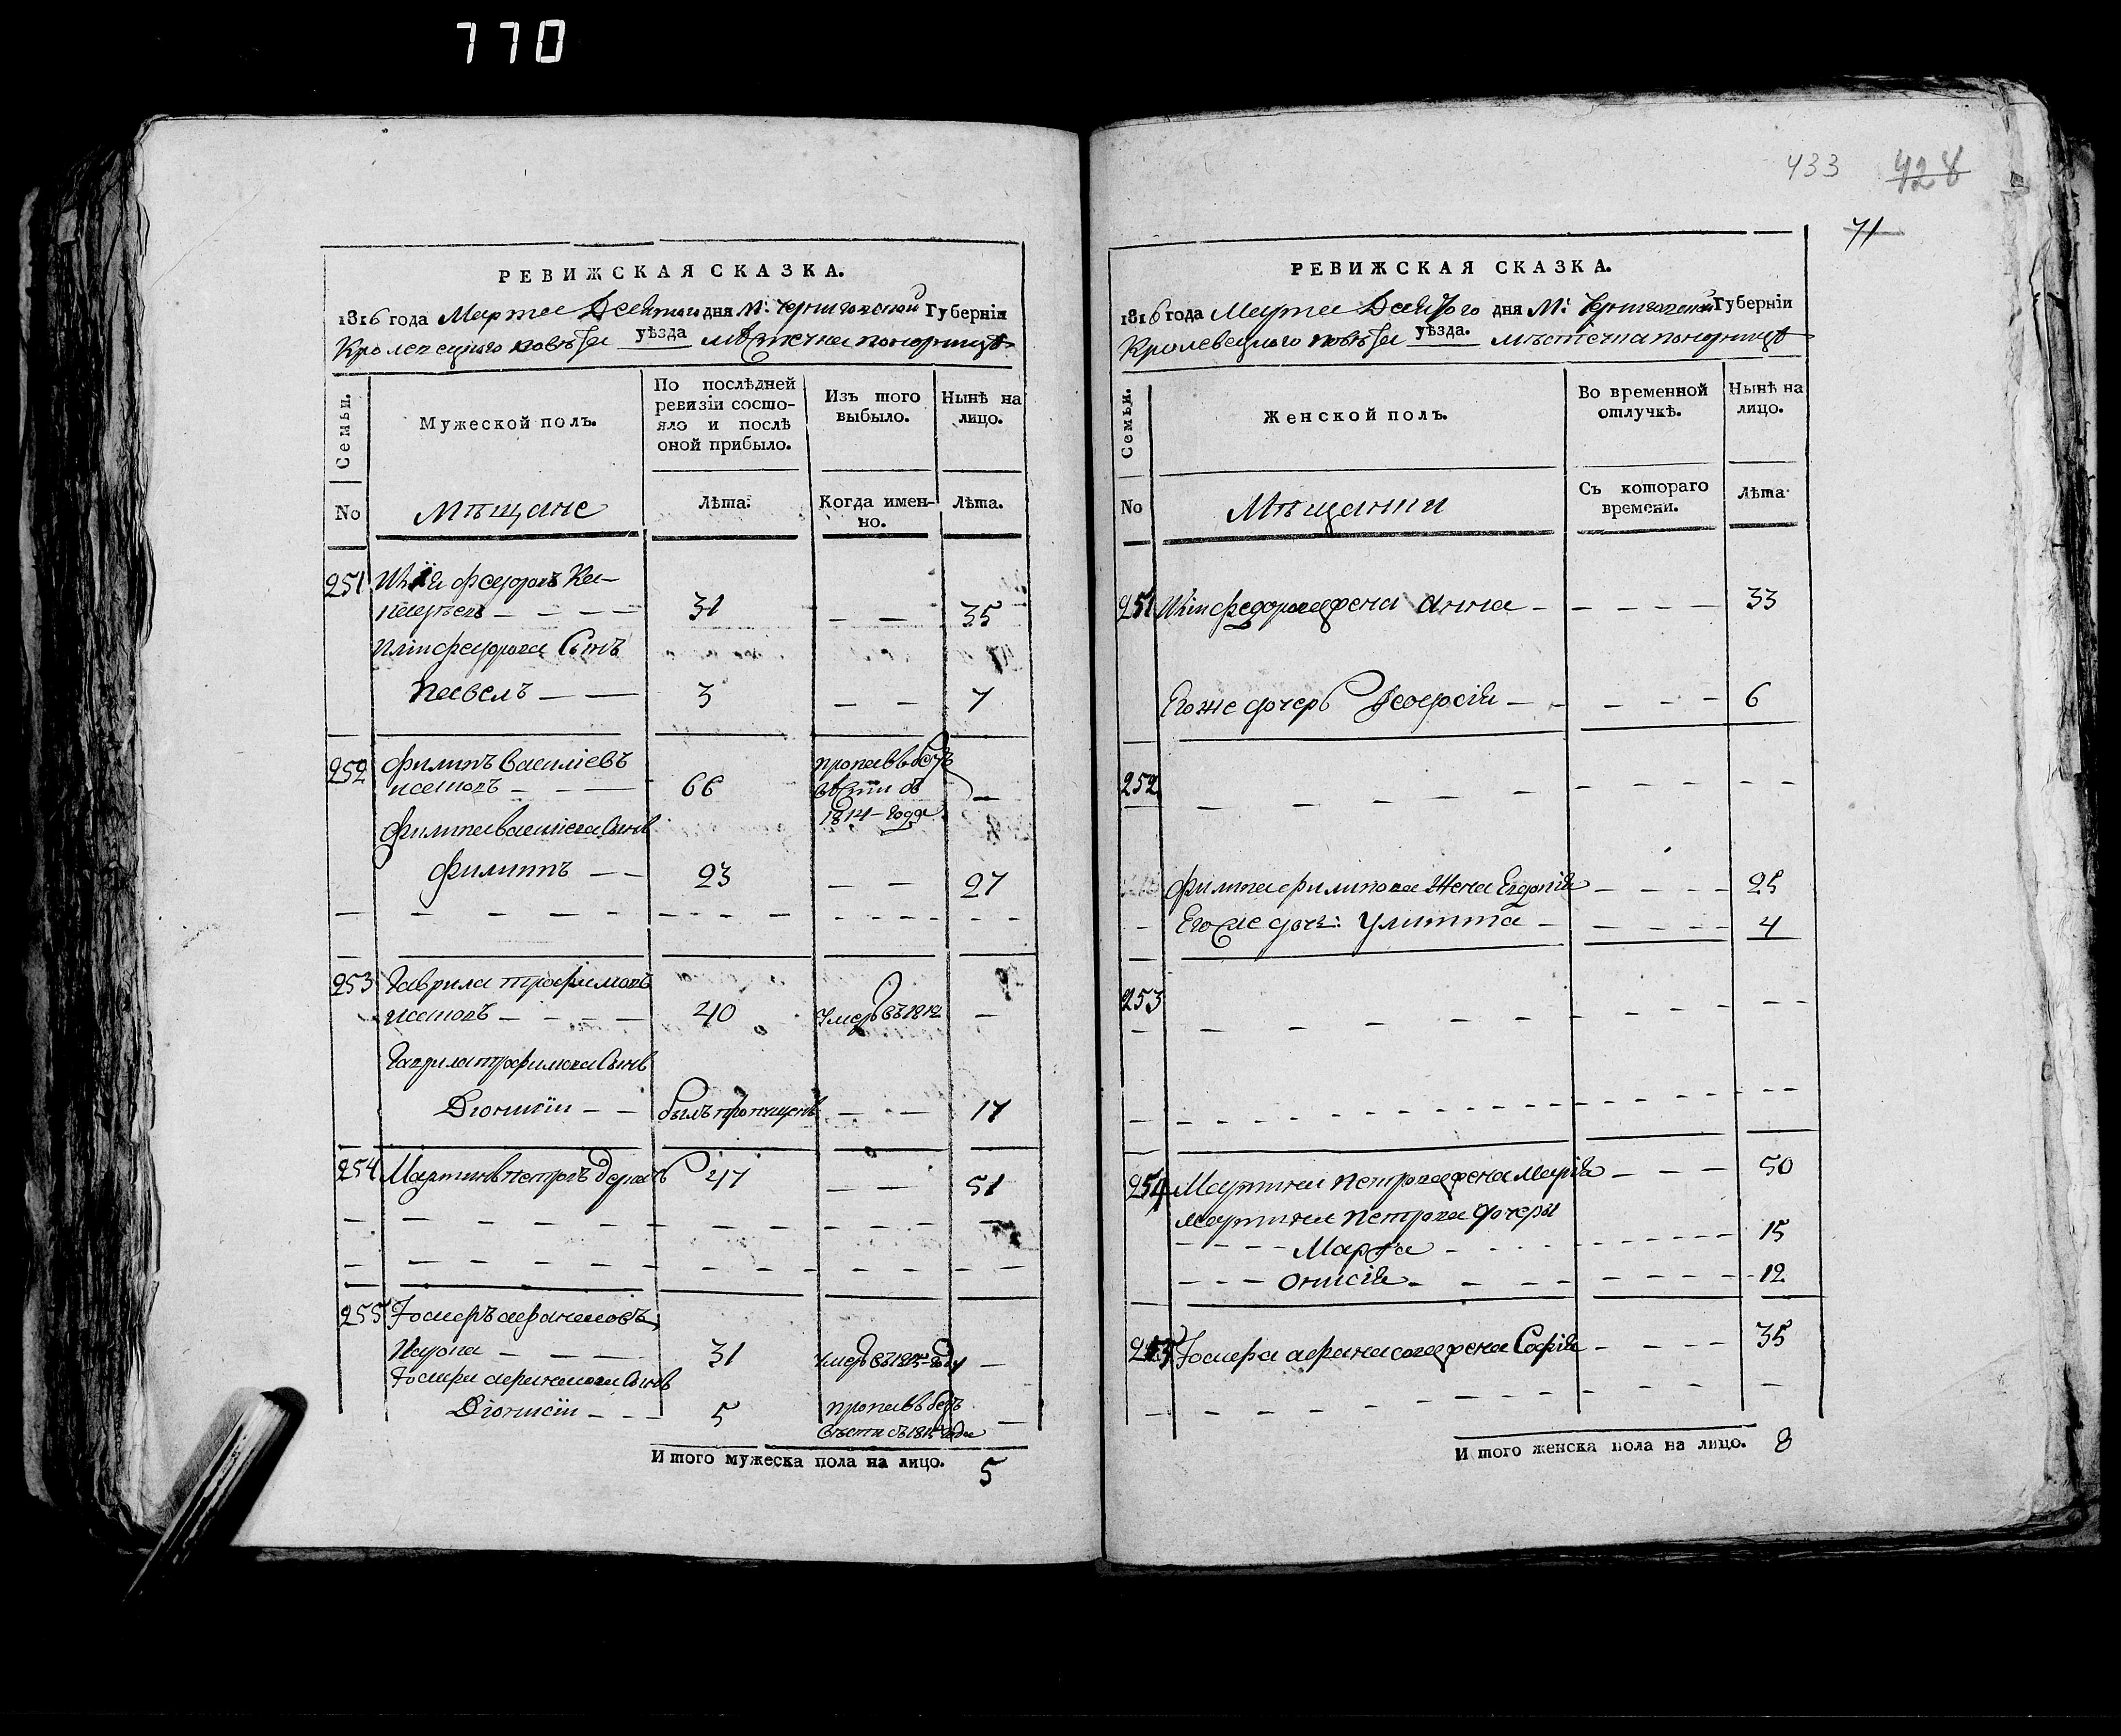 770
433 428
71
РЕВИЖСКАЯ СКАЗКА.
1816 года Марта Девятого дня М: Черниговской Губерніи
Кролевецкого повѣта уѣзда мѣстечка понорницѣ
Семьи.
Мужеской полъ.
По послѣдней ревизіи состо-
яло и послѣ оной прибыло.
Изъ того выбыло.
Нынѣ на лицо.
No Мѣщане Лѣта. Когда имен-
но. Лѣта.
251 Илія федоровъ
31 — — 35
Иліи федорова Сынъ
павелъ — — 3 — — 7
252 филипъ василіевъ пропавъ безъ
66 вѣсти въ —
1814 года
филипа василіева Сынъ
филиппъ — — 23 — — 27
253 Гаврила трофимовъ
40 умеръ въ 1812 —
Гаврила трофимова Сынъ
Діонисіи — — былъ пропущенъ — — 17
254 Мартинъ петровъ 47 — — 51
255 Іосифъ афанасовъ
31 умеръ въ году —
Іосифа афанасова Сынъ
Діонисіи — — — 5 пропавъ безъ —
вѣсти года
И того мужеска пола на лицо. 5
РЕВИЖСКАЯ СКАЗКА.
1816 года Марта Девятого дня М: Черниговской Губерніи
Кролевецкого повѣта уѣзда. мѣстечка понорницѣ
Семьи.
Женской полъ.
Во временной отлучкѣ.
Нынѣ на лицо.
No Мѣщанки Съ котораго
времени. Лѣта
251 Иліи федорова жена Анна — — — — — 33
Его же дочерь — — — — — 6
252
филипа филипова Жена Евдокія — — — — 25
Его же доч: Улитта — — — — — 4
253
254 Мартина петрова жена Марія — — — 50
Мартина петрова дочеры
— — — — Марфа — 15
— — — онисія — 12
255 Іосифа афанасова жена Софія — — — — 35
И того женска пола на лицо. 8